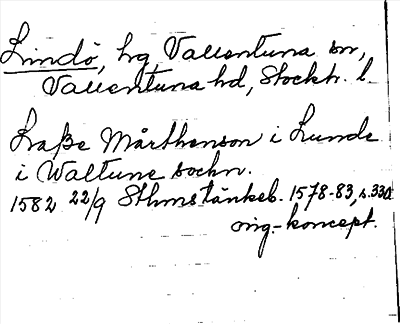 Lindö, hg, Vallentuna sn,
Vallentuna hd, Stockh. l.
Laße Mårthenson i Lunde
i Waltune sochn.
1582 22/9 Sthms tänkeb. 1578-83, s. 330
orig.-koncept.